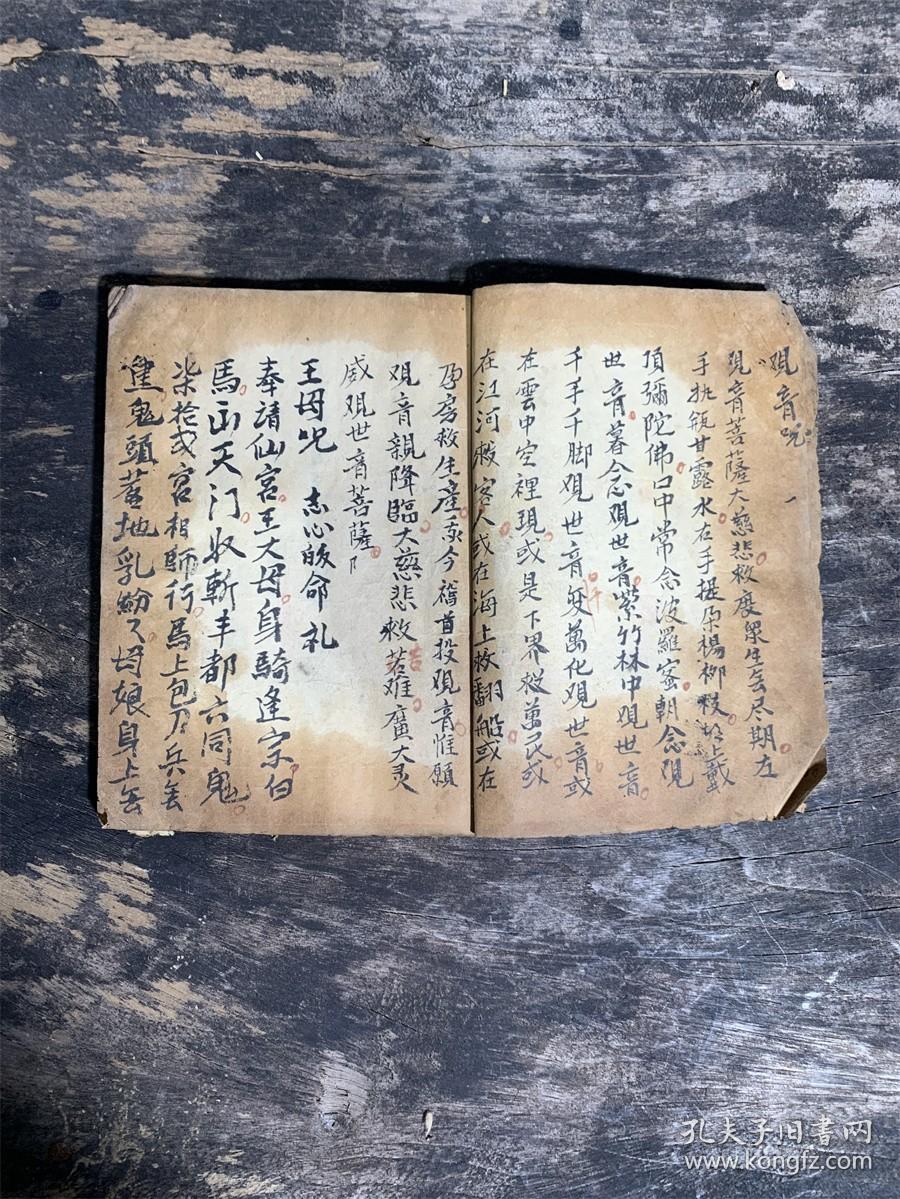 观音咒
观音菩薩大慈悲救度众生無尽期左
手执瓶甘露水右手提楊柳枝上戴
頂彌陀佛口中常念波羅蜜朝念观
世音暮念观世音紫竹林中观世音
千手千脚观世音变萬化观世音或
在雲中空裡現或是下界救萬民或
在江河救客人或在海上救翻船或在
孕房救生產我今稽首投观音惟願
观音親降臨大慈悲救苦难廣大灵
感观世音菩薩
王母咒 志心皈命礼
奉請仙宮王大母身騎逢宗白
馬山天門收斬丰都六同鬼
柒拾弍宮相師行馬上包刀兵無
鬼頭着地乱紛々母娘身上無
孔夫子旧書网
www.kongfz.com